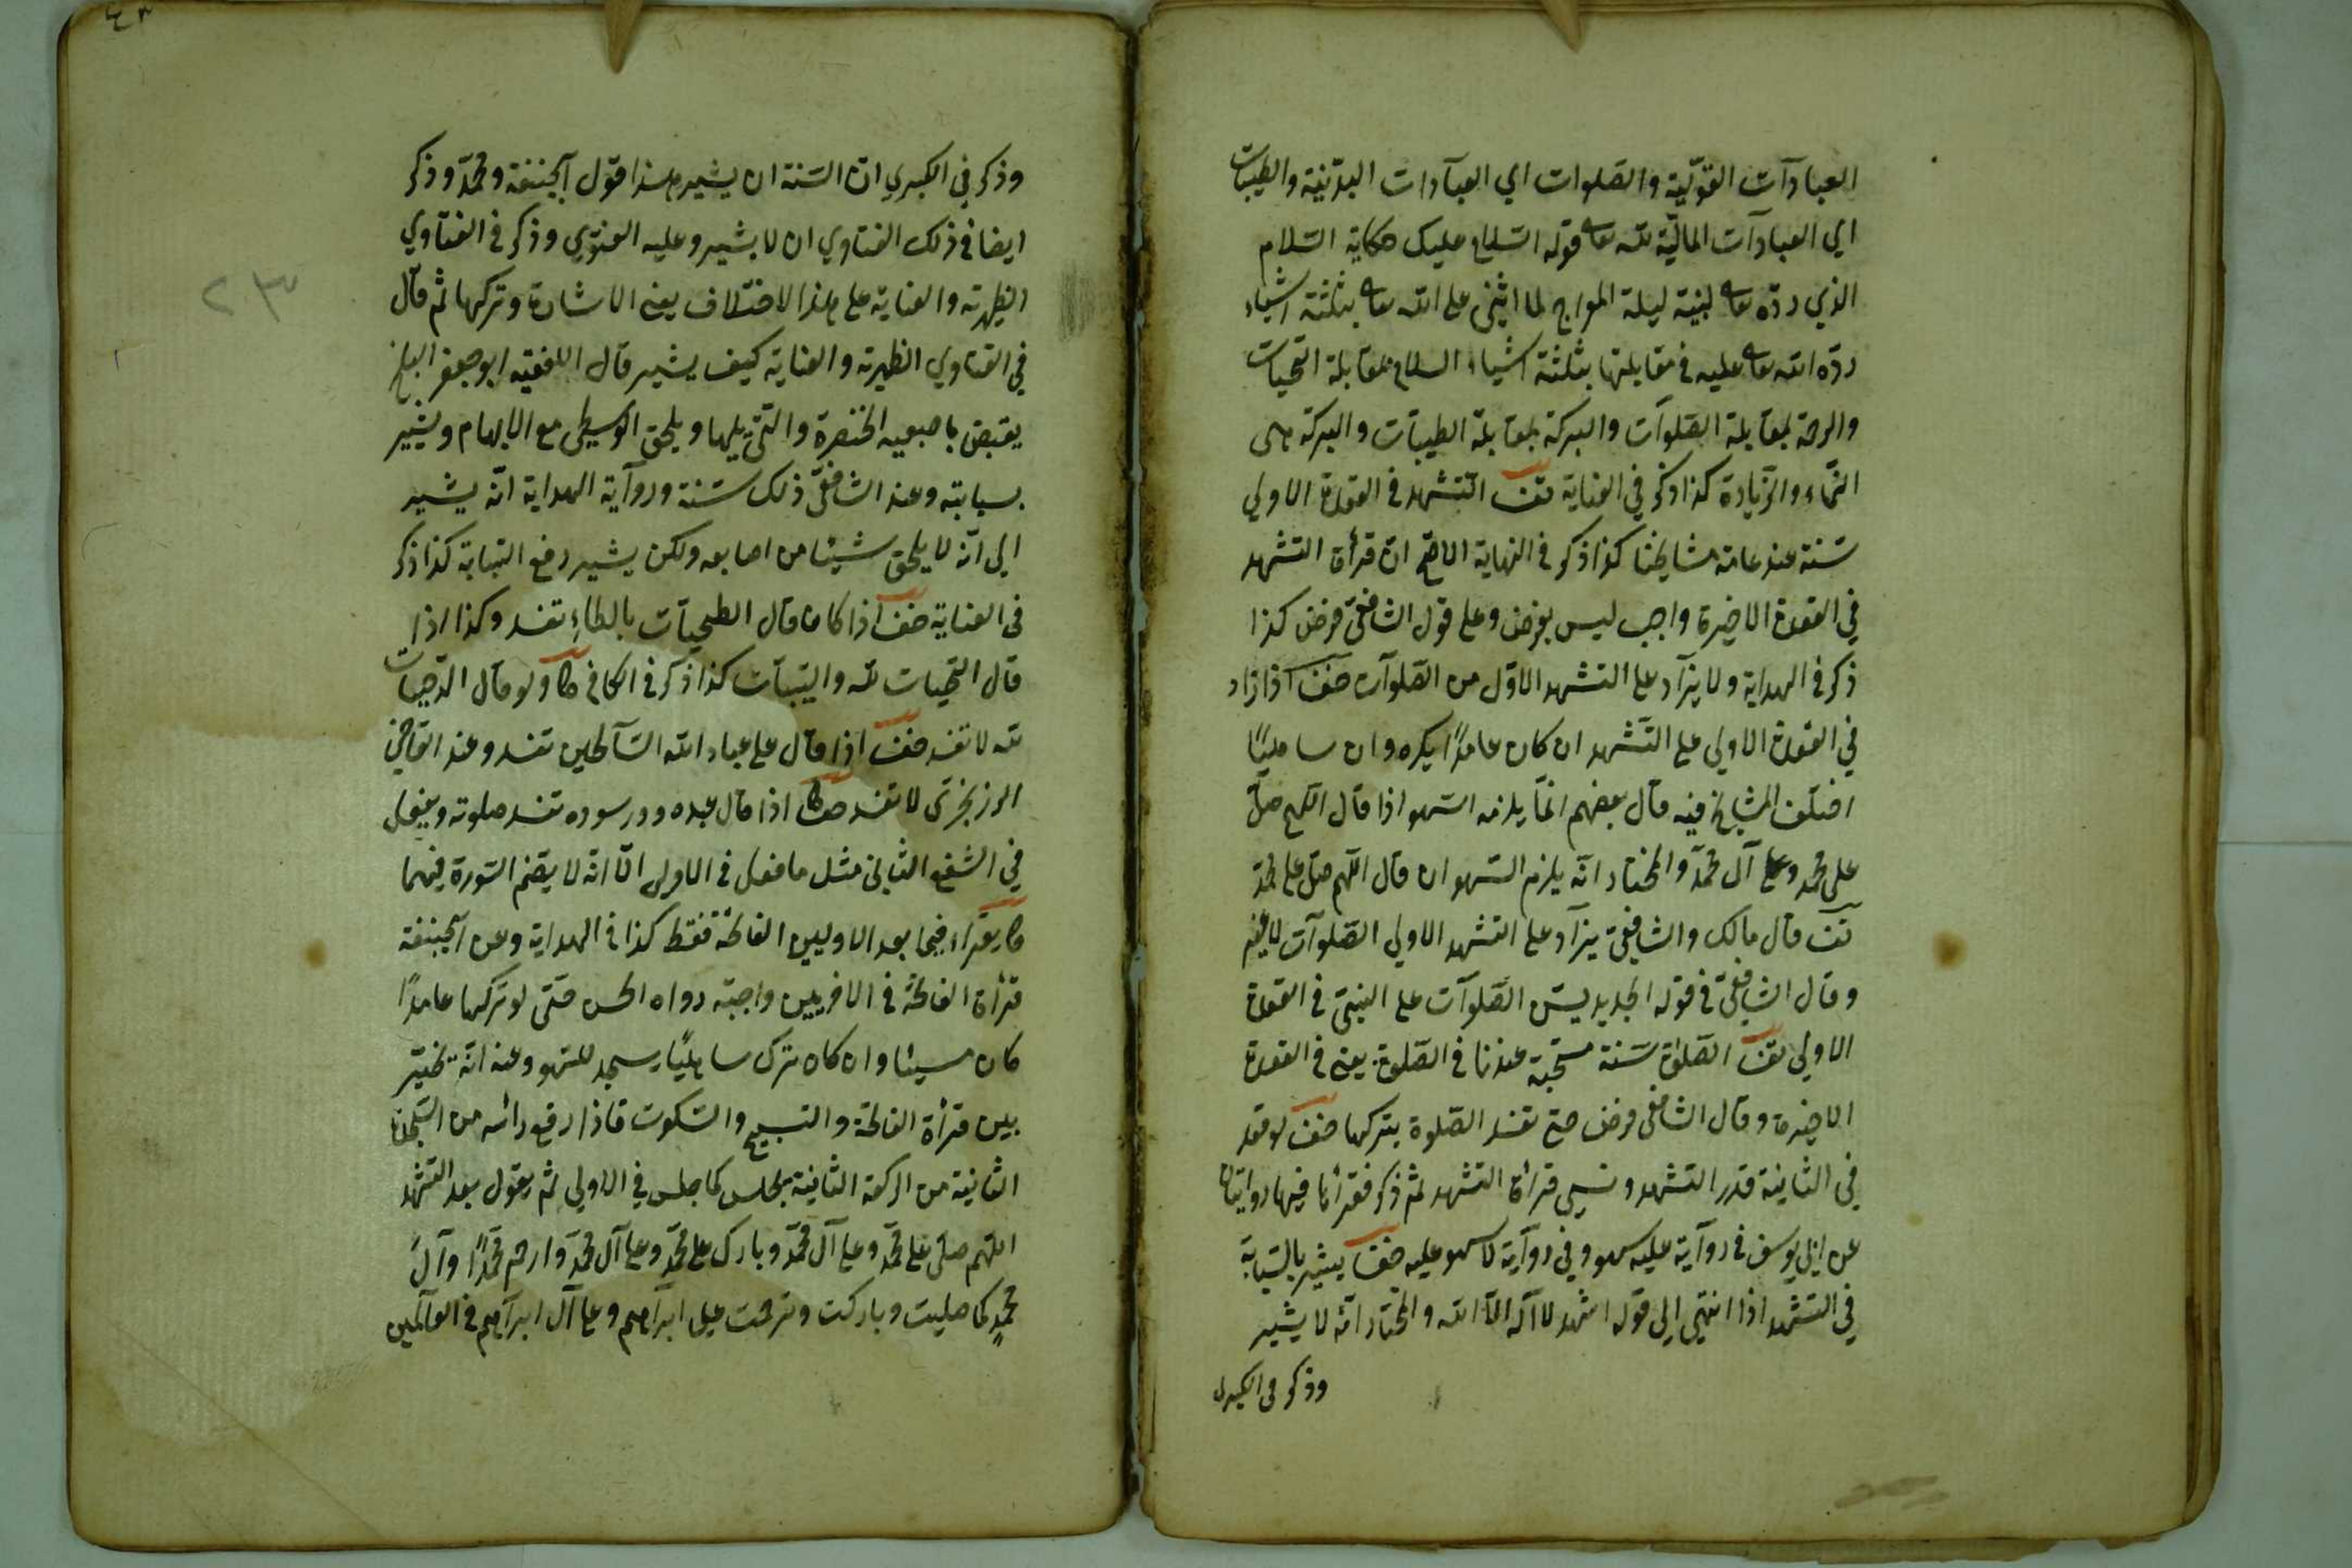 العبادآت القوليّة والصّلوات اي العبآدات البدنيّة والطيّبات
اي العبادآت الماليّة لله تعا قوله السّلام عليك حكاية السّلام
الذي ردّه تعا لنبيّه ليلة المعراج لما اثنى على الله تعا بثلثة اشياء
ردّه الله تعا عليه في مقابلتها بثلثة اشياء السلام بمقابلة التحيات
والرحمة بمقابلة الصّلوآت والبركة بمقابلة الطيبآت والبركة هى
النّماء والزيّادة كذا ذكر في العناية تف التّشهد في القعدة الاولي
سنّة عند عامة مشايخنا كذا ذكر في النهاية الاصح ان قرأة التشهد
في القعدة الاخيرة واجب ليس بفرض وعلى قول الشافعىّ فرض كذا
ذكر في الهداية ولا يزآد على التشهد الاوّل من الصّلوآت خف اذا زاد
في القعدة الاولي على التّشهد ان كان عامدًا يكره وان ساهيًا
اختلف المشايخ فيه قآل بعضهم انمّا يلزمه السّهو اذا قال اللّهم صلّ
على محمد وعلى آل محمّد والمختار انّه يلزم السّهو ان قال اللّهم صلّ على محمّد
تف قآل مالك والشافعيّ يزآد على التّشهد الاولي الصّلوآت لا غير
وقال الشافعيّ في قوله الجديد يسنّ الصّلوآت على النبىّ في القعدة
الاولي تف الصّلوة سنّة مستحبّة عندنا في الصّلوة يعنى في القعدة
الاخيرة وقال الشافعى فرض حتى تفسد الصّلوة بتركها خف لو قعد
في الثانية قدر التشهد ونسي قرأة التشهد ثم ذكر فقرأها فيها روايتان
عن ابي يوسف في روآية عليه سهو وفي روآية لا سهو عليه خف يشير بالسّبابة
في التّشهد اذا انتهى الي قوله اشهد لا آله الّا الله والمختار انّه لا يشير
وذكر في الكبرى
وذكر في الكبري انّ السّنة ان يشير هذا قول آبيحنيفة ومحمّد وذكر
ايضا في ذلك الفتاوي ان لا يشير وعليه الفتوي وذكر في الفتآوي
الظهيرته والعناية على هذا الاختلاف يعنى الاشارة وتركها ثم قآل
في الفتاوي الظهيرته والعناية كيف يشير قآل الفقيه ابو جعفر
يقبض باصبعيه الخنصرة والتّي يليها ويلحق الوسطى مع الابهام ويشير
بسبابته وعند الشافعىّ ذلك سنّة وروآية الهداية انّه يشير
الي انّه لا يلحق شيئا من اصابعه ولكن يشير رفع السّبابة كذا ذكر
في العناية خف اذا كان قال الطحيآت بالطاءِ تفسد وكذا اذا
قال التّحيات لله واليّبآت كذا ذكر في الكافي كا ولو قآل الدّحيات
لله لا تفسد خف اذا قآل على عباد الله السّآلحين تفسد وعند القاضي
لا تفسد اذا قآل عبده وورسوده تفسد صلوته ويفعل
في الشّفع الثانى مثل ما فعل في الاولى الّا انّه لا يضم السّورة فيهما
كا يقرآء فيما بعد الاوليين الفاتحة فقط كذا في الهداية وعن آبيحنيفة
قرأة الفاتحة في الاخريين واجبة رواه الحسن حتّى لو تركها عامدًا
كان مسيئا وان كان ترك ساهيًا يسجد للسّهو وعنه انّه تخيّر
بين قرأة الفاتحة والتسبيح والسّكوت فاذا رفع رأسه من السّجدة
الثانية من الركعة الثانية يجلس كما جلس في الاولى ثم يقول بعد التّشهد
اللّهم صلّى على محمّد وعلى آل محمّد وبارك على محمّد وعلى آل محمّد وارحم محمّدًا وآلَ
محمّدٍ كما صليت وباركت وترحّمت على ابرآهيم وعلى آل ابرآهيم في العآلمين
٢٣